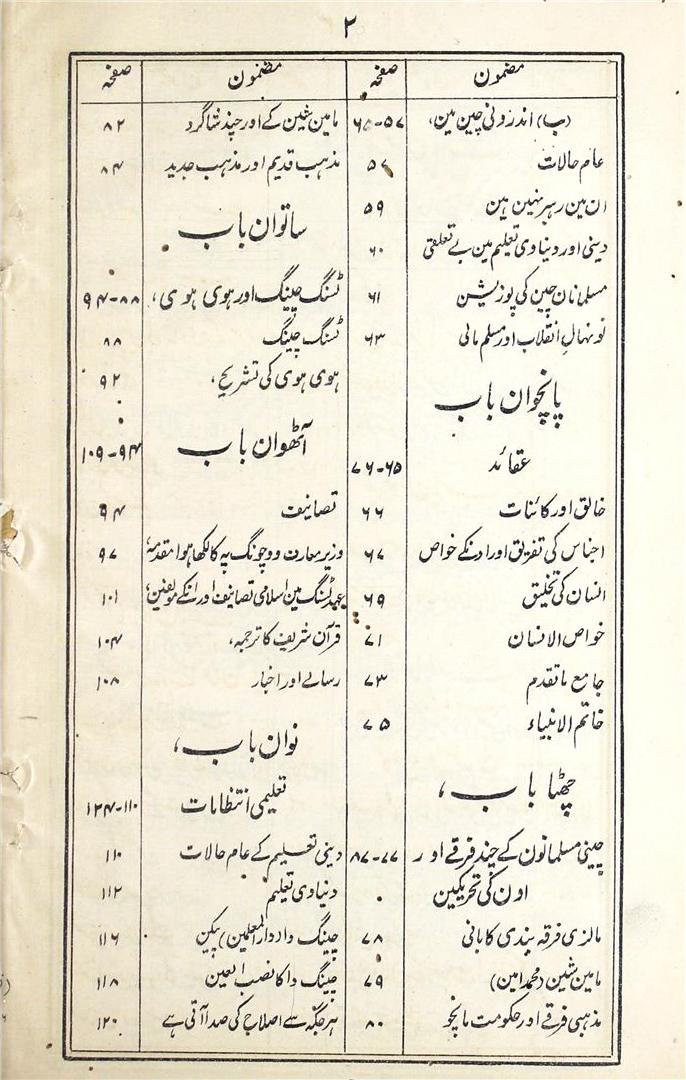 ۲
مضمون صفحہ
(ب) اندرونی چین مین، ۵۷-۶۵
عام حالات ۵۷
ان مین رہبر نہین ہین ۵۹
دینی اور دیناوی تعلیم مین بے تعلقی ۶۰
مسلمانان چین کی پوزیشن ۶۱
نونہالِ انقلاب اور مسلم مالی ۶۳
پانچوان باب
عقائد ۶۵-۷۶
خالق اور کائنات ۶۶
اجناس کی تفریق اور اونکے خواص ۶۷
انسان کی تخلیق ۶۹
خواص الانسان ۷۱
جامع ماتقدم ۷۳
خاتم الانبیاء ۷۵
چھٹا باب،
چینی مسلمانون کے چند فرقے اور ۷۷-۸۷
اون کی تحریکین
مالزی فرقہ بندی کا بانی ۷۸
مامین شین (محمد امین) ۷۹
مذہبی فرقے اور حکومت مانچو ۸۰
مضمون صفحہ
مامین شین کے اور چند شاگرد ۸۲
مذہب قدیم اور مذہب جدید ۸۴
ساتوان باب
ٹسنگ چینگ اور ہوی ہوی، ۸۸-۹۴
ٹسنگ چینگ ۸۸
ہوی ہوی کی تشریح، ۹۲
آٹھوان باب ۹۴-۱۰۹
تصانیف ۹۴
وزیر معارف ووچونگ یہ کا لکھا ہوا مقدمہ، ۹۷
عہد ٹسنگ مین اسلامی تصانیف اور انکے مولفین، ۱۰۱
قرآن شریف کا ترجمہ، ۱۰۴
رسالے اور اخبار ۱۰۸
نوان باب،
تعلیمی انتظامات ۱۱۰-۱۲۴
دینی تعلیم کے عام حالات ۱۱۰
دیناوی تعلیم ۱۱۲
چینگ دا (دار المعلمین) پیکن ۱۱۶
چینگ دا کا نصب العین ۱۱۸
ہر جگہ سے اصلاح کی صدا آتی ہے ۱۲۰